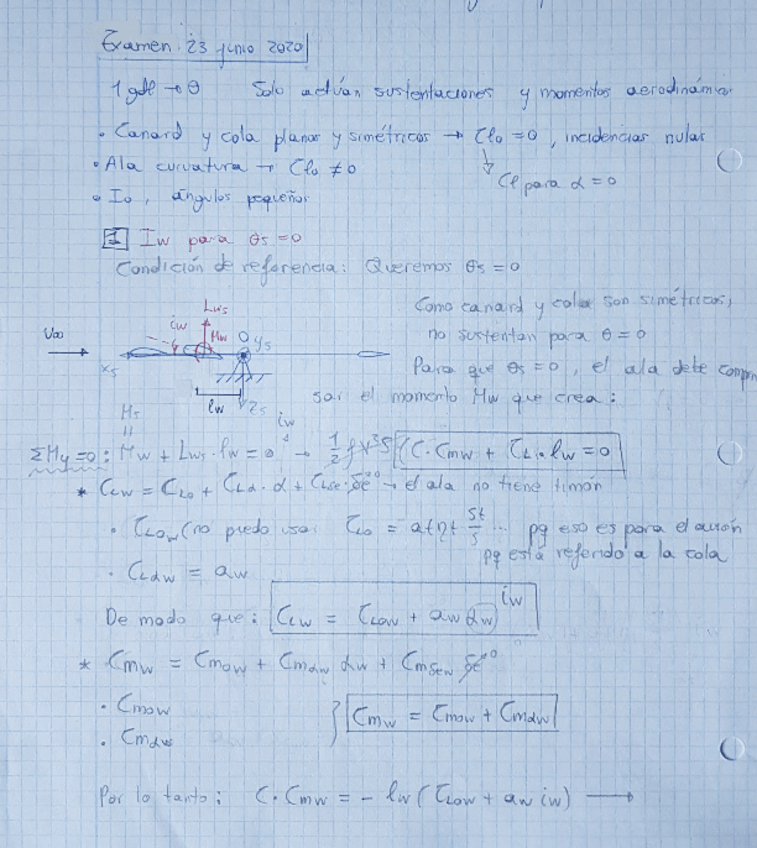 Examen 23 junio 2020
1 gdl → θ Solo actúan sustentaciones y momentos aerodinámic
• Canard y cola planos y simétricos → Cl₀ = 0, incidencias nulas
• Ala curvatura → Cl₀ ≠ 0
Cl para α = 0
• I₀, ángulos pequeños
1 Iw para θs = 0
Condición de referencia: Queremos θs = 0
Como canard y cola son simétricos,
no sustentan para θ = 0
Para que θs = 0, el ala debe compen
sar el momento Mw que crea:
U∞
xs
iw
Lws
Mw
O
ys
lw
zs
Ms
=
iw
ΣMy = 0: Mw + Lws · lw = 0 → 1/2 ρV²S (C · Cmw + CL · lw = 0
* CLw = CL₀ + CLα · α + CLδe · δe⁰ → el ala no tiene timón
• CL₀w (no puedo usar CL₀ = at ηt St/S ... pq eso es para el avión
pq está referido a la cola
• CLαw = aw
De modo que: CLw = CL₀w + aw αw iw
* Cmw = Cm₀w + Cmαw αw + Cmδew δe⁰
• Cm₀w
• Cmαw
} Cmw = Cm₀w + Cmαw
Por lo tanto: C · Cmw = - lw (CL₀w + aw iw) →